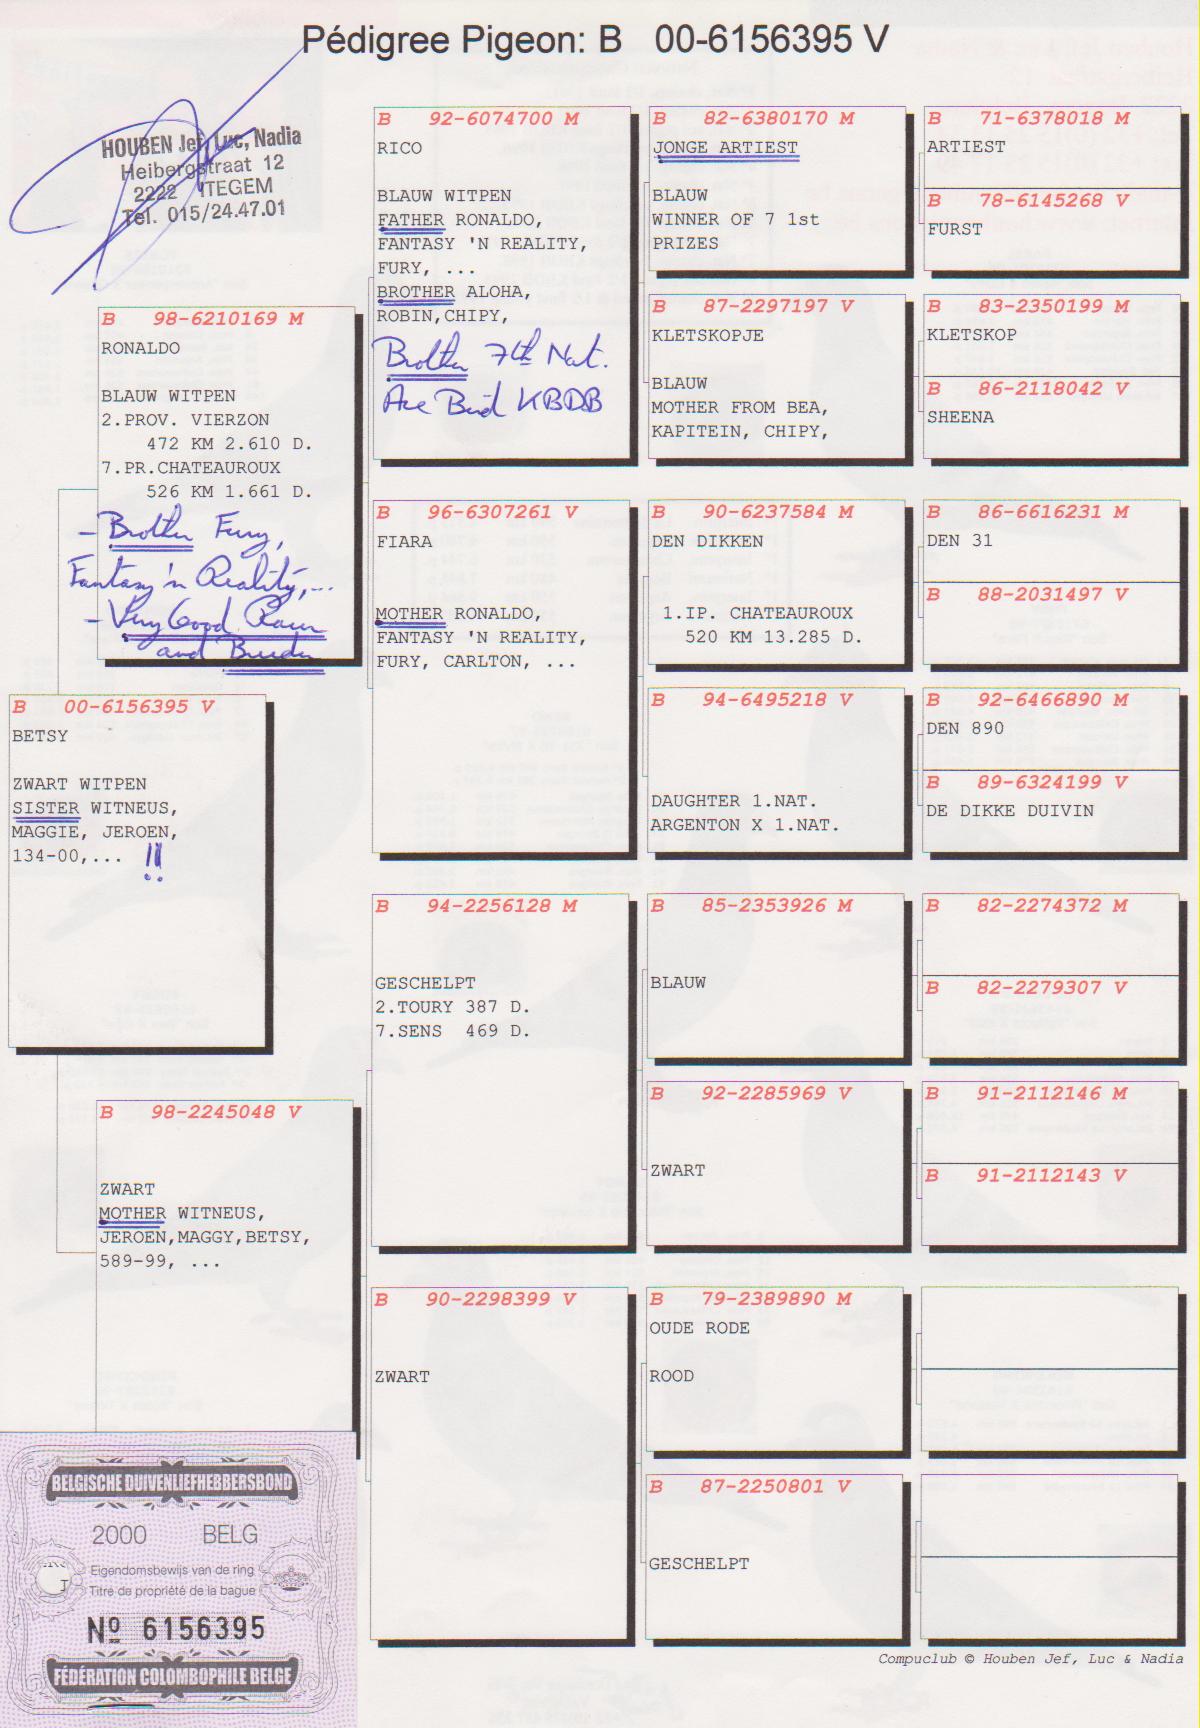 Pédigree Pigeon: B 00-6156395 V
HOUBEN Jef, Luc, Nadia
Heibergstraat 12
2222 ITEGEM
Tel. 015/24.47.01
B 98-6210169 M
RONALDO
BLAUW WITPEN
2.PROV. VIERZON
472 KM 2.610 D.
7.PR.CHATEAUROUX
526 KM 1.661 D.
- Brother Fury,
Fantasy 'n Reality,...
- Very Good Racer
and Breeder
B 00-6156395 V
BETSY
ZWART WITPEN
SISTER WITNEUS,
MAGGIE, JEROEN,
134-00,... !!
B 98-2245048 V
ZWART
MOTHER WITNEUS,
JEROEN,MAGGY,BETSY,
589-99, ...
B 92-6074700 M
RICO
BLAUW WITPEN
FATHER RONALDO,
FANTASY 'N REALITY,
FURY, ...
BROTHER ALOHA,
ROBIN,CHIPY,
Brother 7th Nat.
Ace Bird KBDB
B 96-6307261 V
FIARA
MOTHER RONALDO,
FANTASY 'N REALITY,
FURY, CARLTON, ...
B 94-2256128 M
GESCHELPT
2.TOURY 387 D.
7.SENS 469 D.
B 90-2298399 V
ZWART
B 82-6380170 M
JONGE ARTIEST
BLAUW
WINNER OF 7 1st
PRIZES
B 87-2297197 V
KLETSKOPJE
BLAUW
MOTHER FROM BEA,
KAPITEIN, CHIPY,
B 90-6237584 M
DEN DIKKEN
1.IP. CHATEAUROUX
520 KM 13.285 D.
B 94-6495218 V
DAUGHTER 1.NAT.
ARGENTON X 1.NAT.
B 85-2353926 M
BLAUW
B 92-2285969 V
ZWART
B 79-2389890 M
OUDE RODE
ROOD
B 87-2250801 V
GESCHELPT
B 71-6378018 M
ARTIEST
B 78-6145268 V
FURST
B 83-2350199 M
KLETSKOP
B 86-2118042 V
SHEENA
B 86-6616231 M
DEN 31
B 88-2031497 V
B 92-6466890 M
DEN 890
B 89-6324199 V
DE DIKKE DUIVIN
B 82-2274372 M
B 82-2279307 V
B 91-2112146 M
B 91-2112143 V
BELGISCHE DUIVENLIEFHEBBERSBOND
2000 BELG
Eigendomsbewijs van de ring
Titre de propriété de la bague
Nº 6156395
FÉDÉRATION COLOMBOPHILE BELGE
Compuclub © Houben Jef, Luc & Nadia